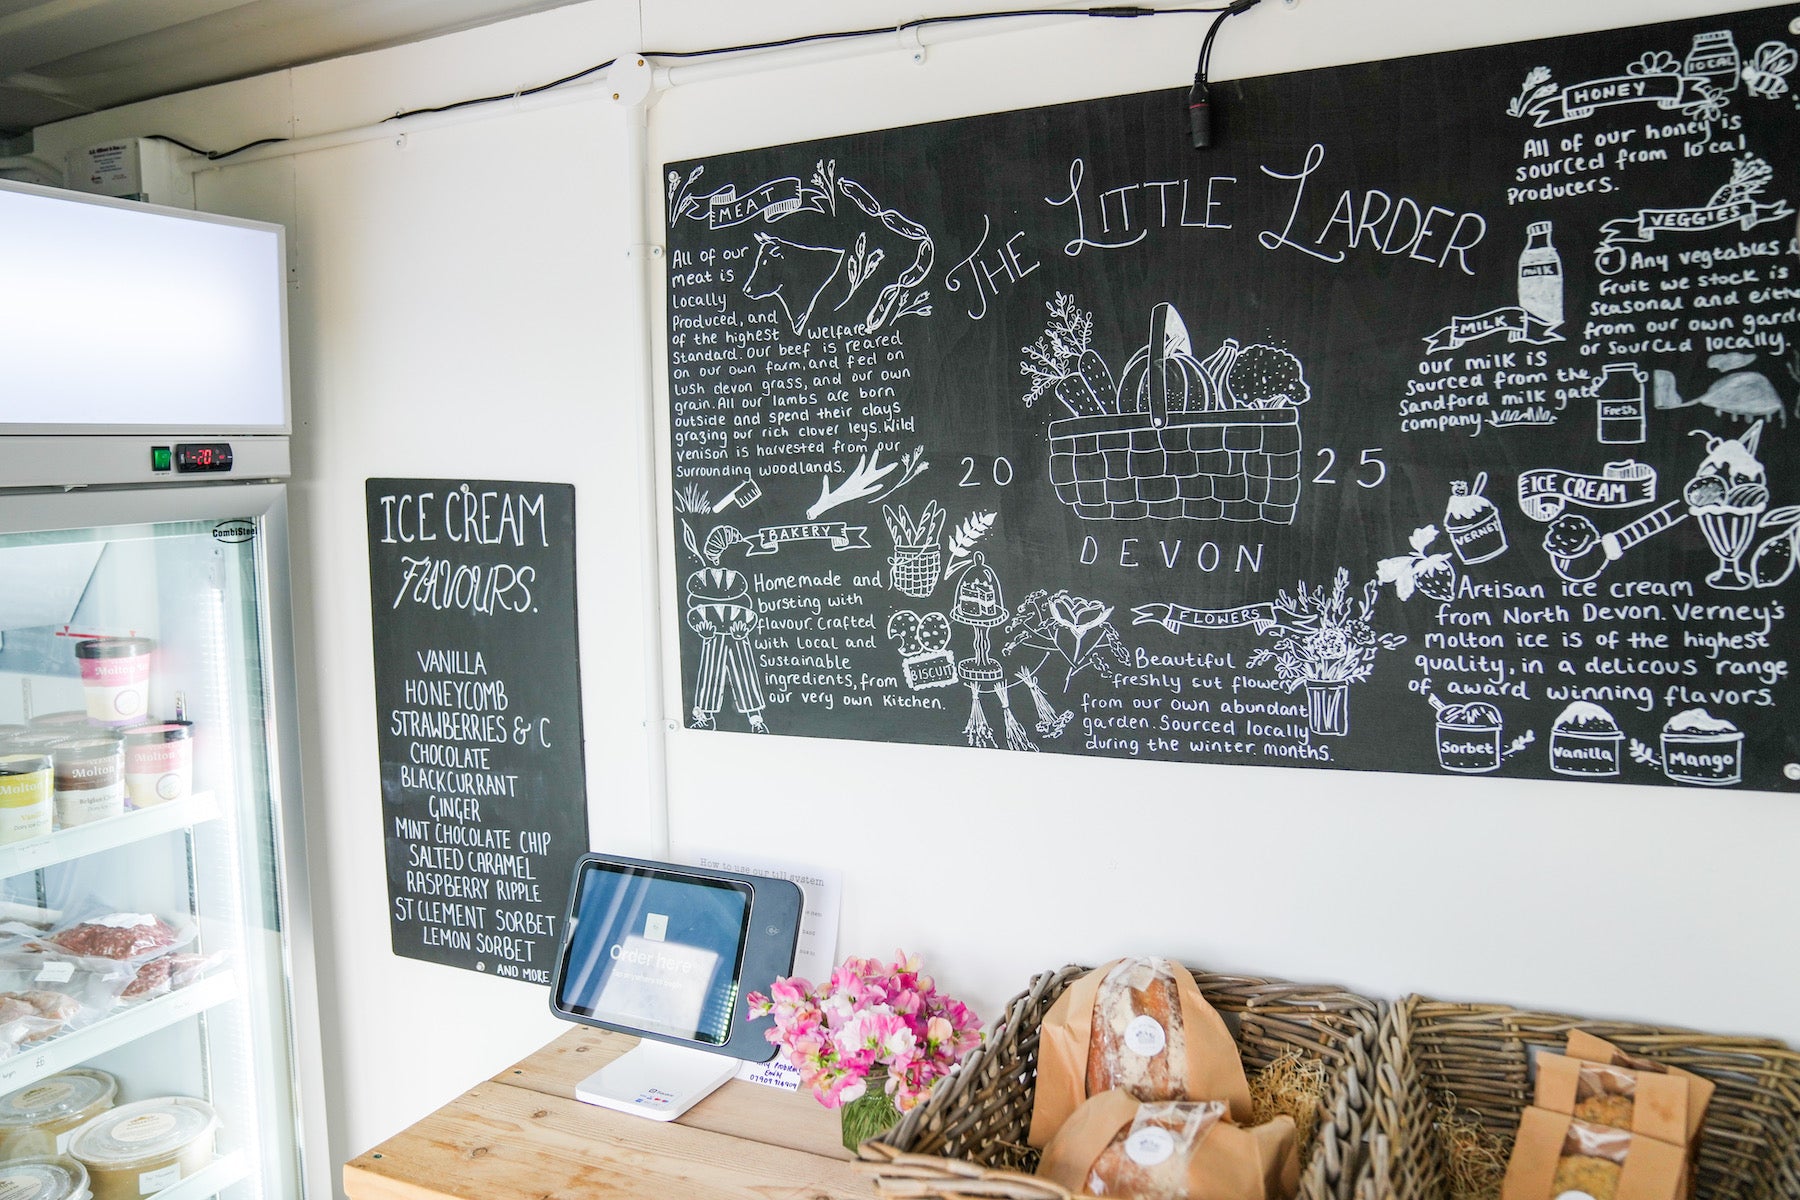 -20
CombiSteel
ICE CREAM
FLAVOURS.
VANILLA
HONEYCOMB
STRAWBERRIES & C
CHOCOLATE
BLACKCURRANT
GINGER
MINT CHOCOLATE CHIP
SALTED CARAMEL
RASPBERRY RIPPLE
ST CLEMENT SORBET
LEMON SORBET
AND MORE
THE LITTLE LARDER
20 25
DEVON
MEAT
All of our
meat is
locally
Produced, and
of the highest welfare
standard. Our beef is reared
on our own farm, and feed on
lush devon grass, and our own
grain. All our lambs are born
outside and spend their clays
grazing our rich clover leys. Wild
venison is harvested from our
surrounding woodlands.
BAKERY
Homemade and
bursting with
flavour. Crafted
with local and
Sustainable
ingredients, from
our very own Kitchen.
BISCUIT
FLOWERS
Beautiful
freshly cut flowers
from our own abundant
garden. Sourced locally
during the winter months.
LOCAL
HONEY
All of our honey is
sourced from local
Producers.
VEGGIES
Any vegtables
Fruit we stock is
seasonal and eith
from our own gard
or sourced locally.
MILK
MILK
our milk is
sourced from the
Sandford milk gate
company
Fresh
ICE CREAM
VERNEY
Artisan ice cream
from North Devon. Verney's
Molton ice is of the highest
quality, in a delicous range
of award winning flavors.
Sorbet
Vanilla
Mango
How to use our till system
Order here
Tap anywhere to begin
Any Problems
Emily
Molton
Molton
Molton
Belgian